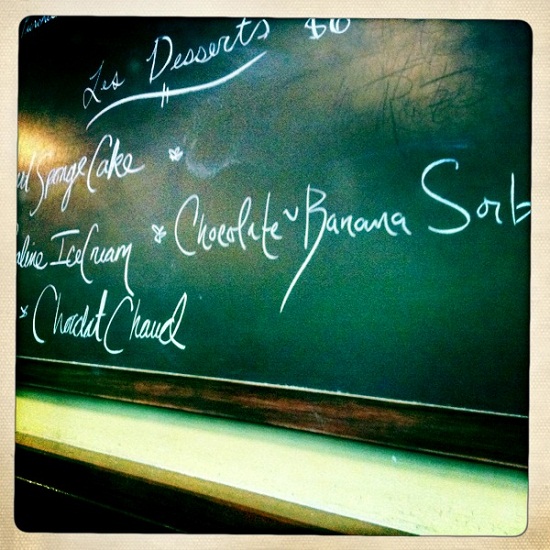 Les Desserts $6
Sponge Cake *
Ice Cream * Chocolate ~ Banana Sorb
* Chocolat Chaud